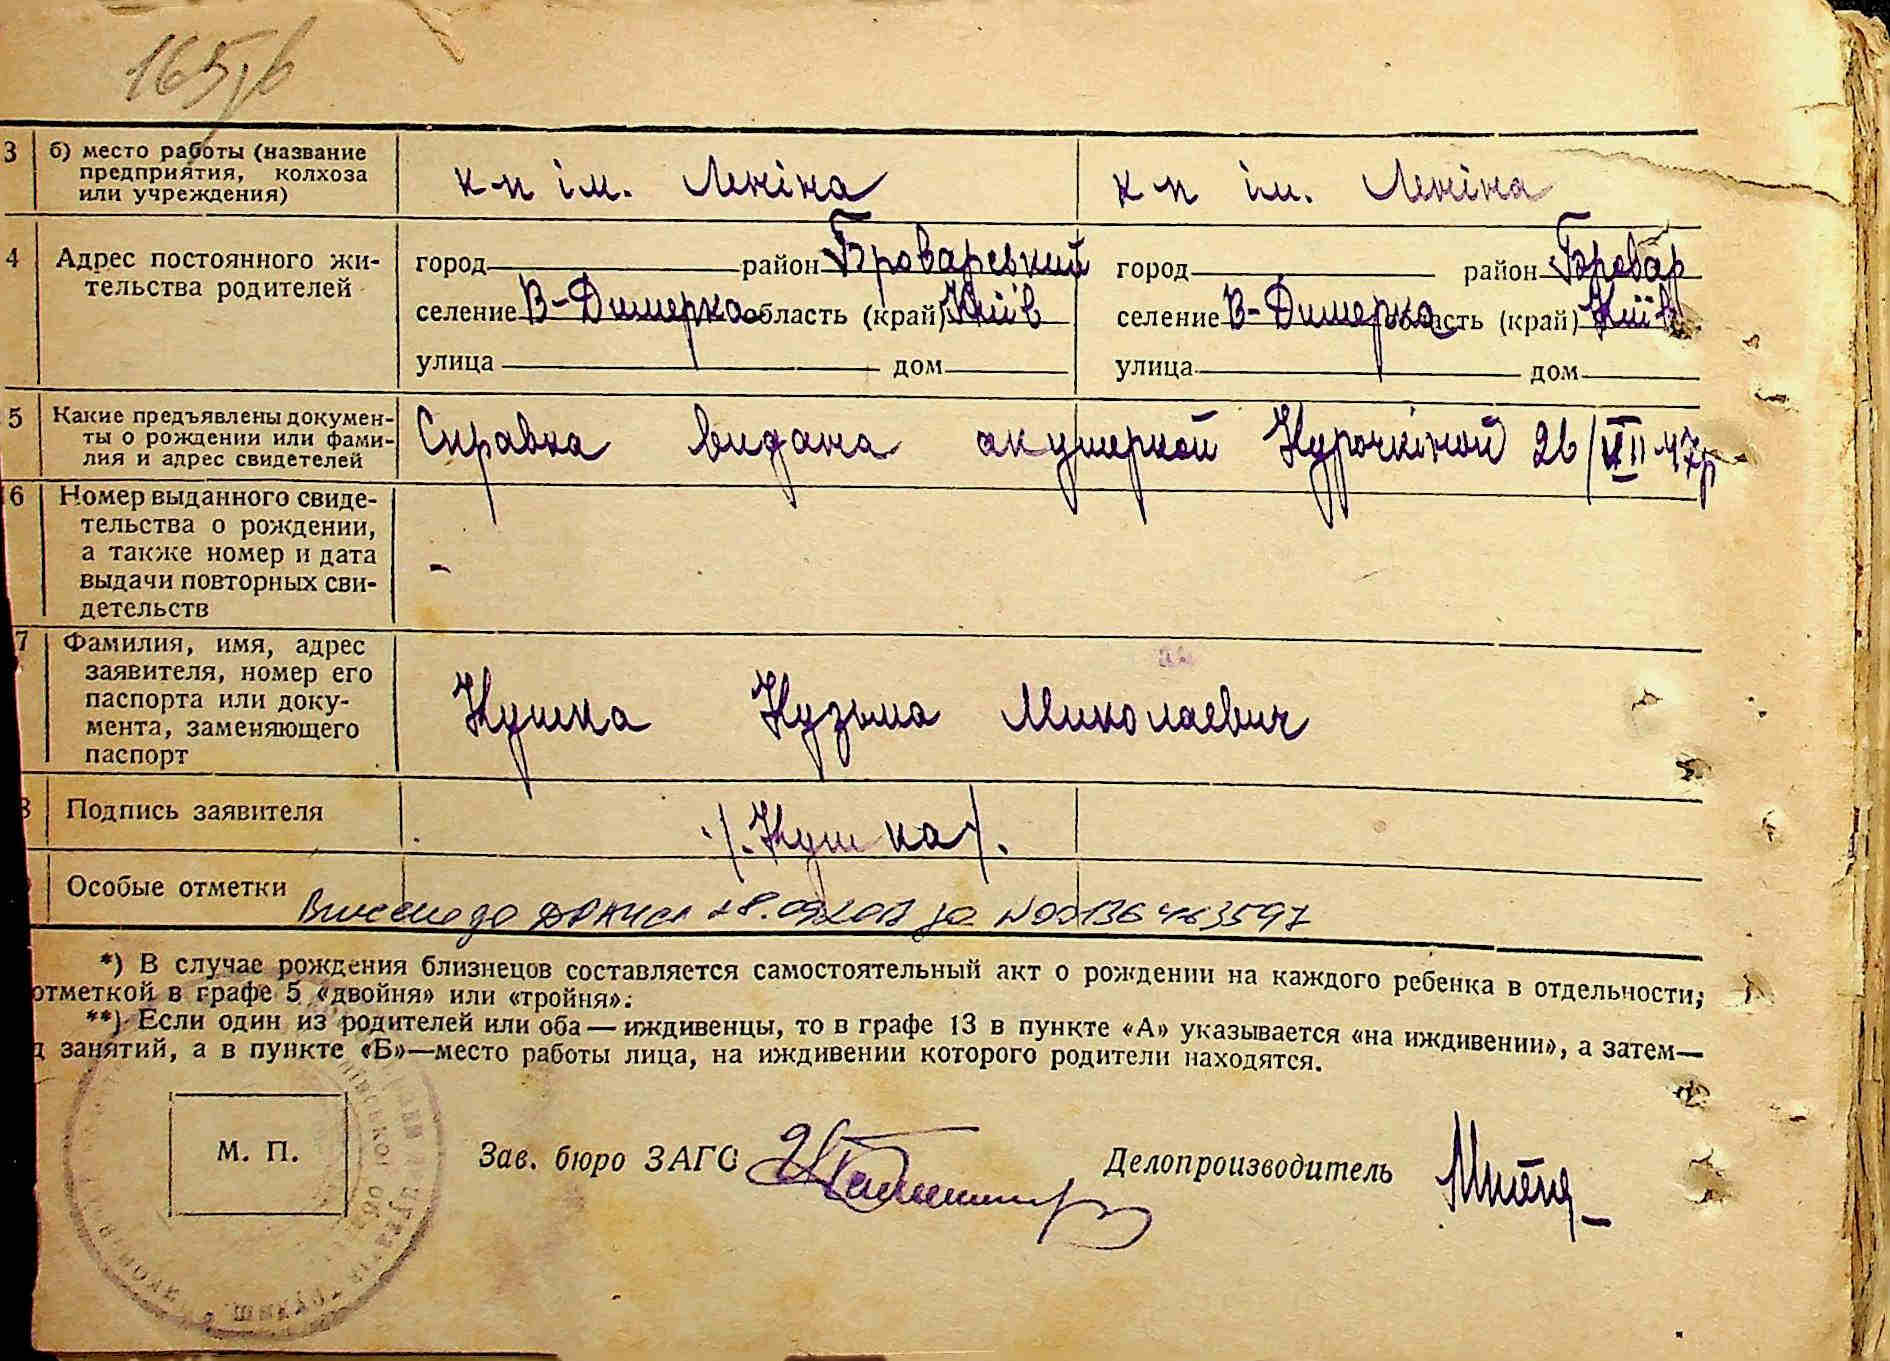 3 б) место работы (название
предприятия, колхоза
или учреждения)
к-п ім. Леніна к-п ім. Леніна
4 Адрес постоянного жи-
тельства родителей
город район Броварський город район Бровар
селение В-Димерка область (край) Київ селение В-Димерка область (край) Київ
улица дом улица дом
5 Какие предъявлены докумен-
ты о рождении или фами-
лия и адрес свидетелей
Справка видана акушеркой Курочкіной 26/VIII 47р
6 Номер выданного свиде-
тельства о рождении,
а также номер и дата
выдачи повторных сви-
детельств
-
7 Фамилия, имя, адрес
заявителя, номер его
паспорта или доку-
мента, заменяющего
паспорт
Кушка Кузьма Миколаевич
Подпись заявителя
/Кушка/.
Особые отметки
Внесено до ДРАЦСГ за N00136463597
*) В случае рождения близнецов составляется самостоятельный акт о рождении на каждого ребенка в отдельности,
отметкой в графе 5 «двойня» или «тройня».
**) Если один из родителей или оба — иждивенцы, то в графе 13 в пункте «А» указывается «на иждивении», а затем—
д занятий, а в пункте «Б»—место работы лица, на иждивении которого родители находятся.
М. П.
Зав. бюро ЗАГС Делопроизводитель